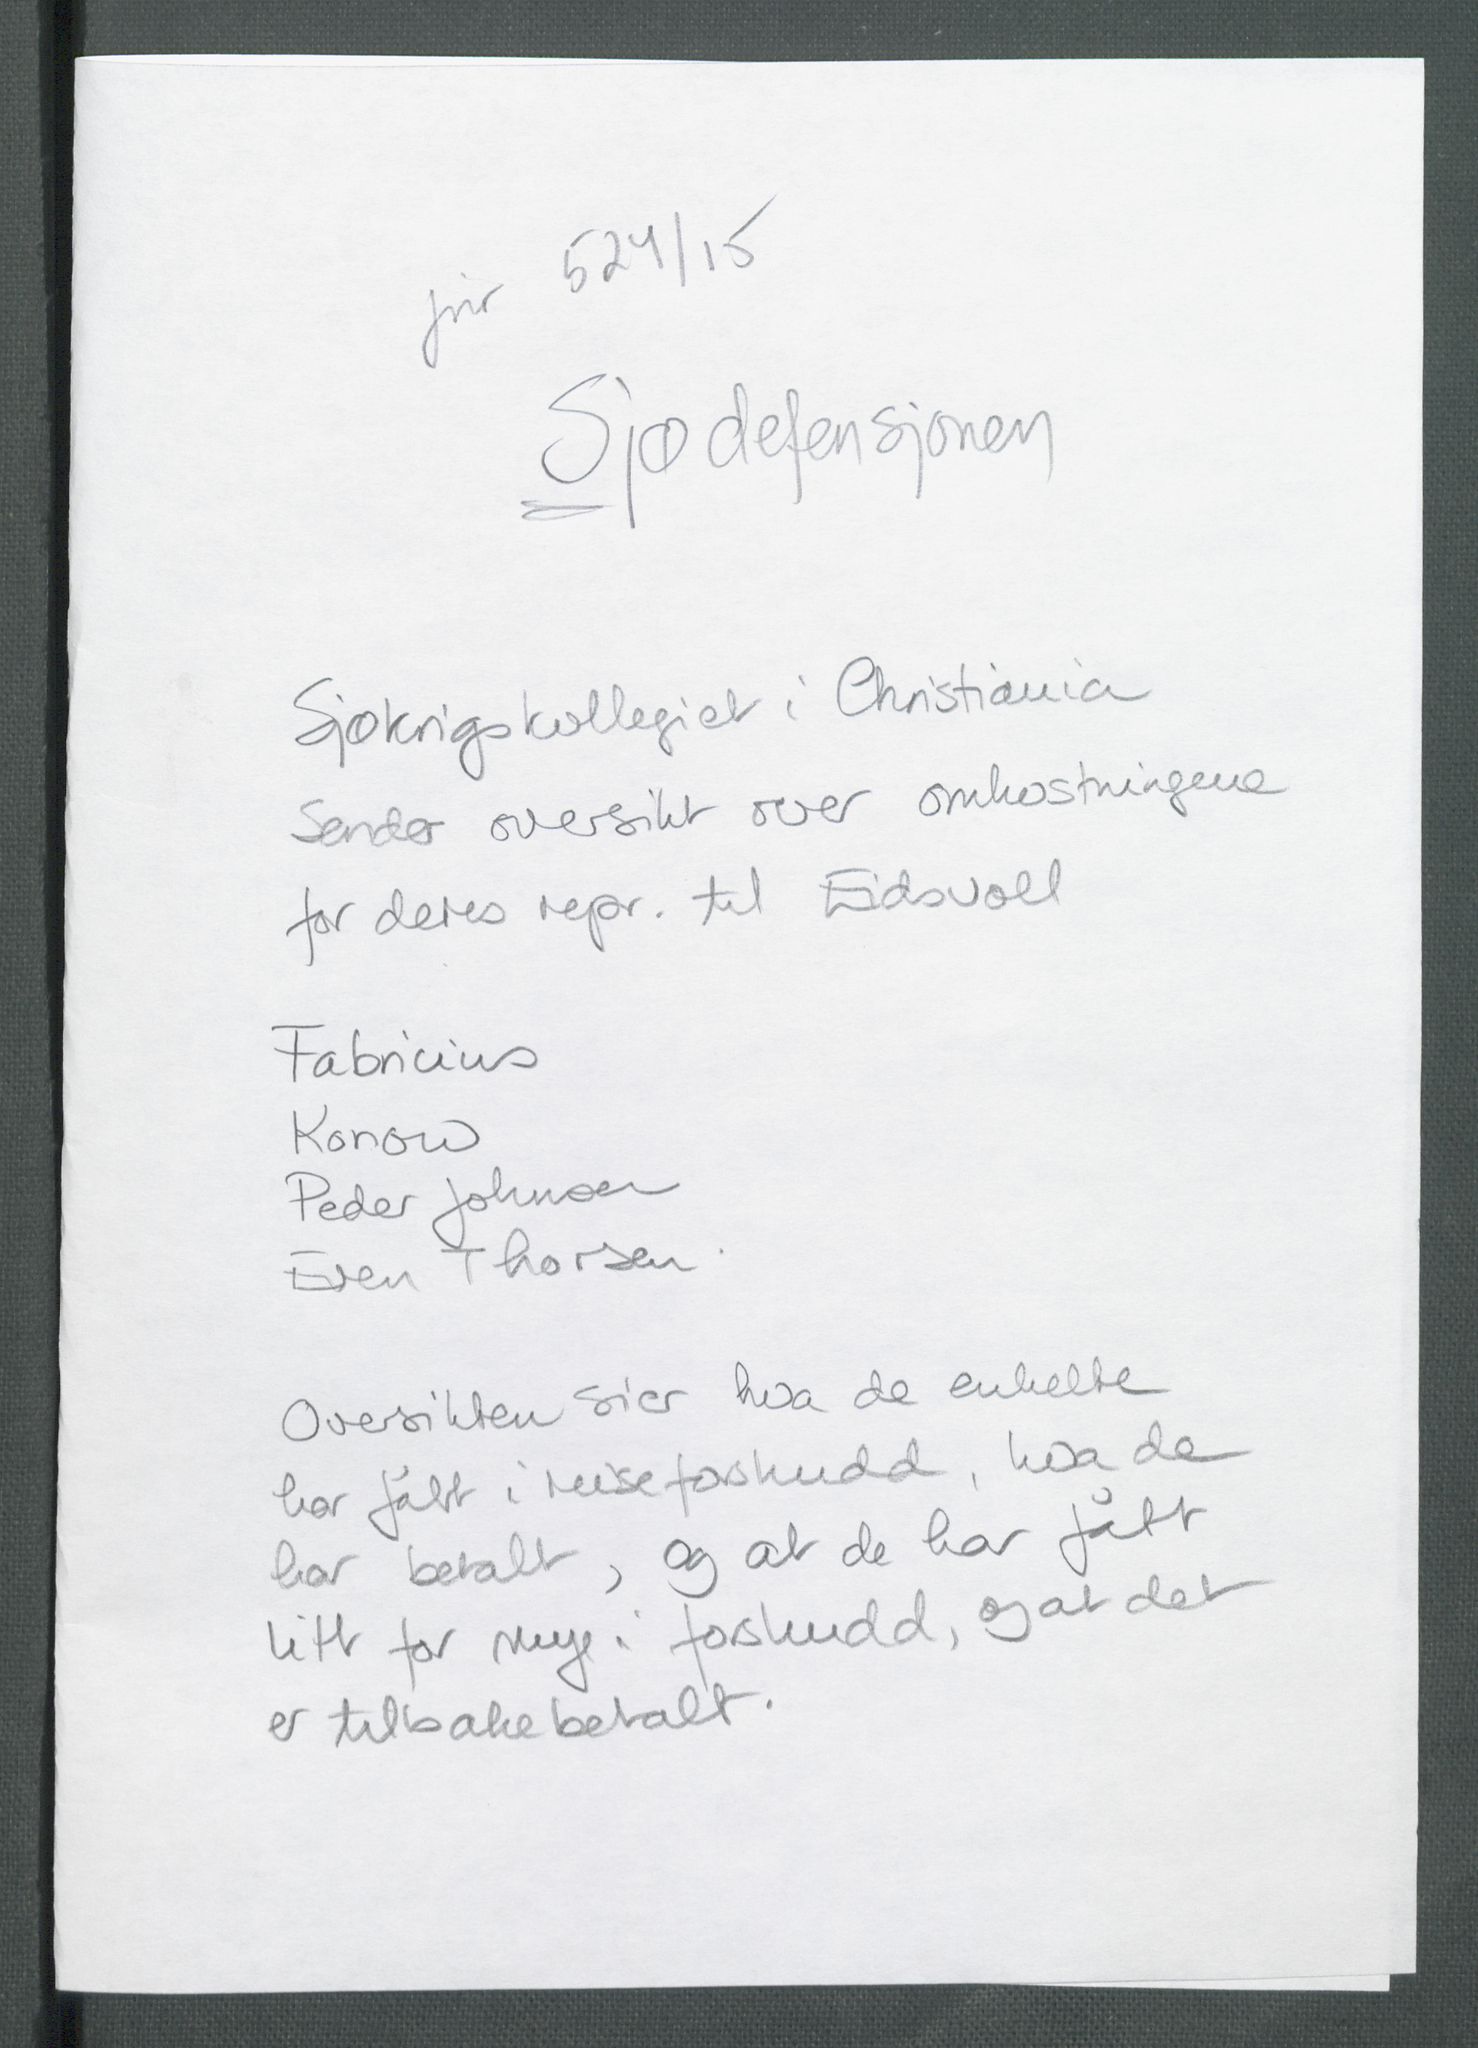 jnr 524/15
Sjødefensjonen
Sjøkrigskollegiet i Christiania
Sender oversikt over omkostningene
for deres repr. til Eidsvoll
Fabricius
Konow
Peder Johnsen
Even Thorsen.
Oversikten sier hva de enkelte
har fått i reiseforskudd, hva de
har betalt, og at de har fått
litt for mye i forskudd, og at det
er tilbakebetalt.